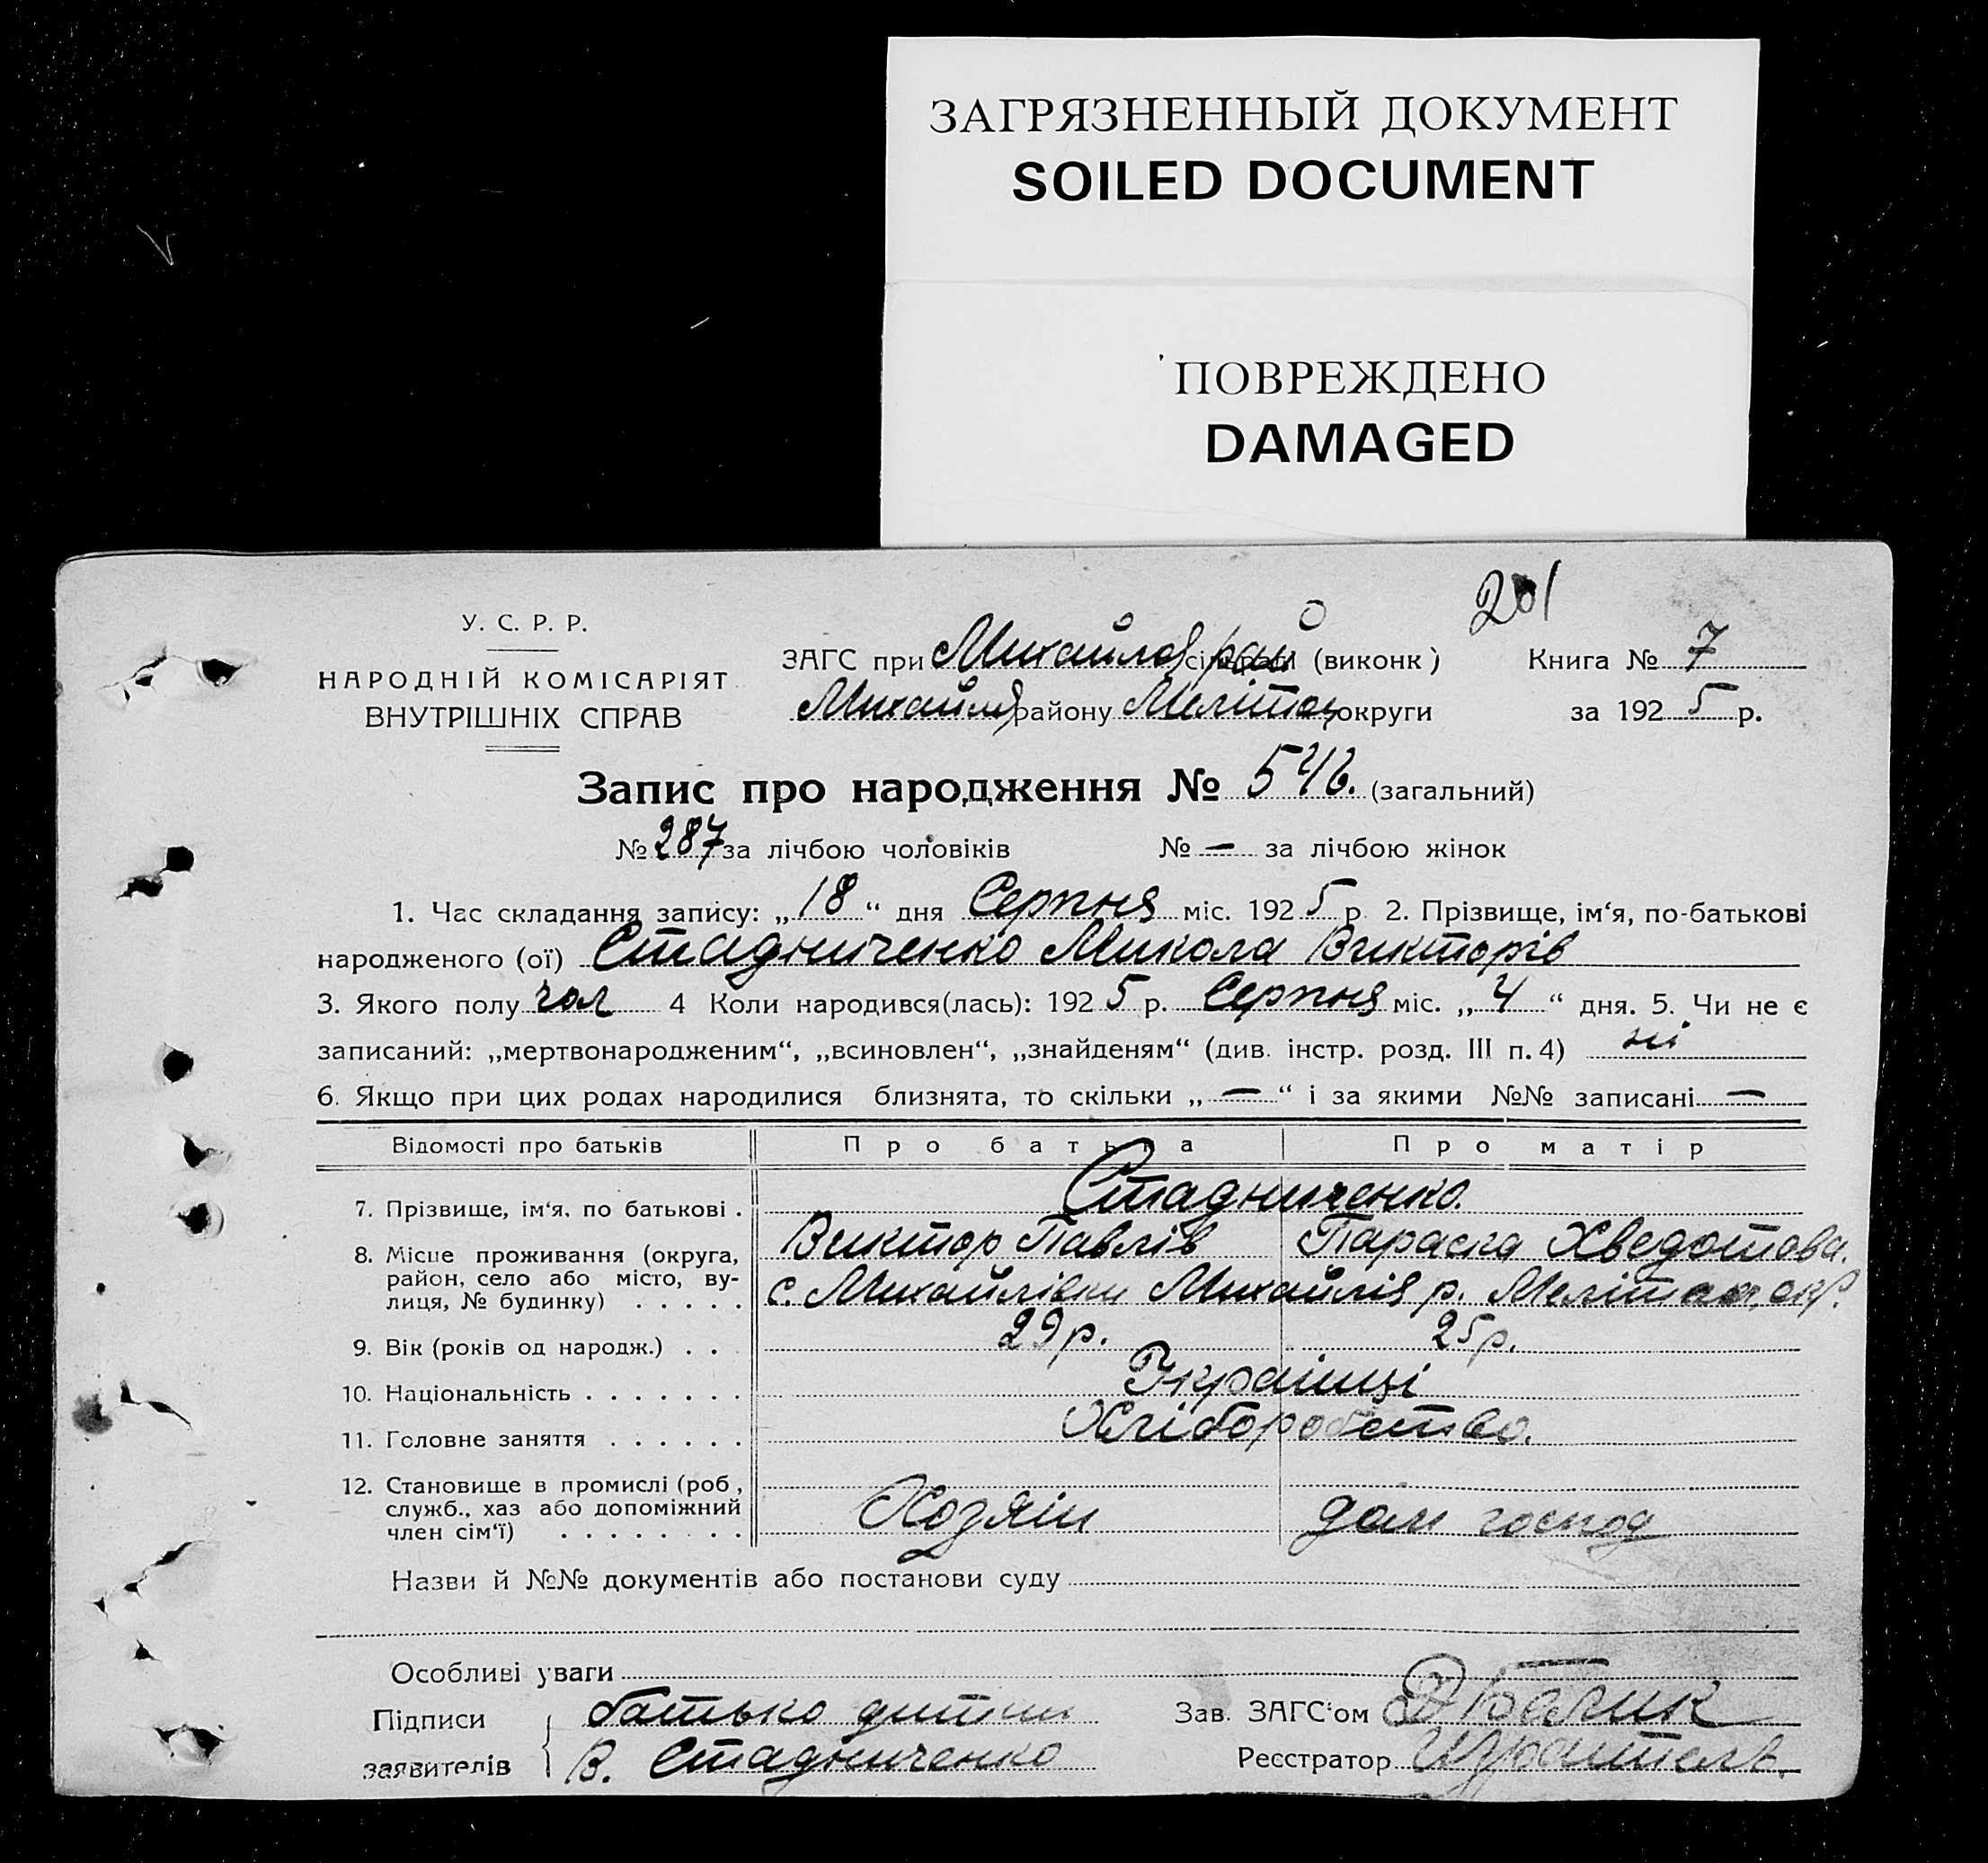 ЗАГРЯЗНЕННЫЙ ДОКУМЕНТ
SOILED DOCUMENT
ПОВРЕЖДЕНО
DAMAGED
201
У. С. Р. Р.
НАРОДНІЙ КОМІСАРІЯТ
ВНУТРІШНІХ СПРАВ
ЗАГС при Михайлов рай (виконк) Книга № 7
Михайлів району Мелітоп округи за 1925 р.
Запис про народження № 546. (загальний)
№ 287 за лічбою чоловіків № — за лічбою жінок
1. Час складання запису: „18“ дня Серпня міс. 1925 р. 2. Прізвище, ім‘я, по-батькові
народженого (ої) Стадниченко Микола Викторів
3. Якого полу чол 4 Коли народився(лась): 1925 р. Серпня міс. „4“ дня. 5. Чи не є
записаний: „мертвонародженим“, „всиновлен“, „знайденям“ (див. інстр. розд. III п. 4) ні
6. Якщо при цих родах народилися близнята, то скільки „—“ і за якими №№ записані —
Відомості про батьків Про батька Про матір
7. Прізвище, ім‘я, по батькові . Стадниченко.
Виктор Павлів Параска Хведотова.
8. Місце проживання (округа,
район, село або місто, ву-
лиця, № будинку) . . . . . с. Михайлівки Михайлів р. Мелітоп. окр.
9. Вік (років од народж.) . . 29 р. 25 р.
10. Національність . . . . . . . Українці
11. Головне заняття . . . . . . Хліборобство.
12. Становище в промислі (роб ,
служб., хаз або допоміжний
член сім‘ї) . . . . . . . . Хозяїн дом господ
Назви й №№ документів або постанови суду
Особливі уваги
Підписи батько дитини Зав. ЗАГС‘ом
заявителів В. Стадниченко Реєстратор